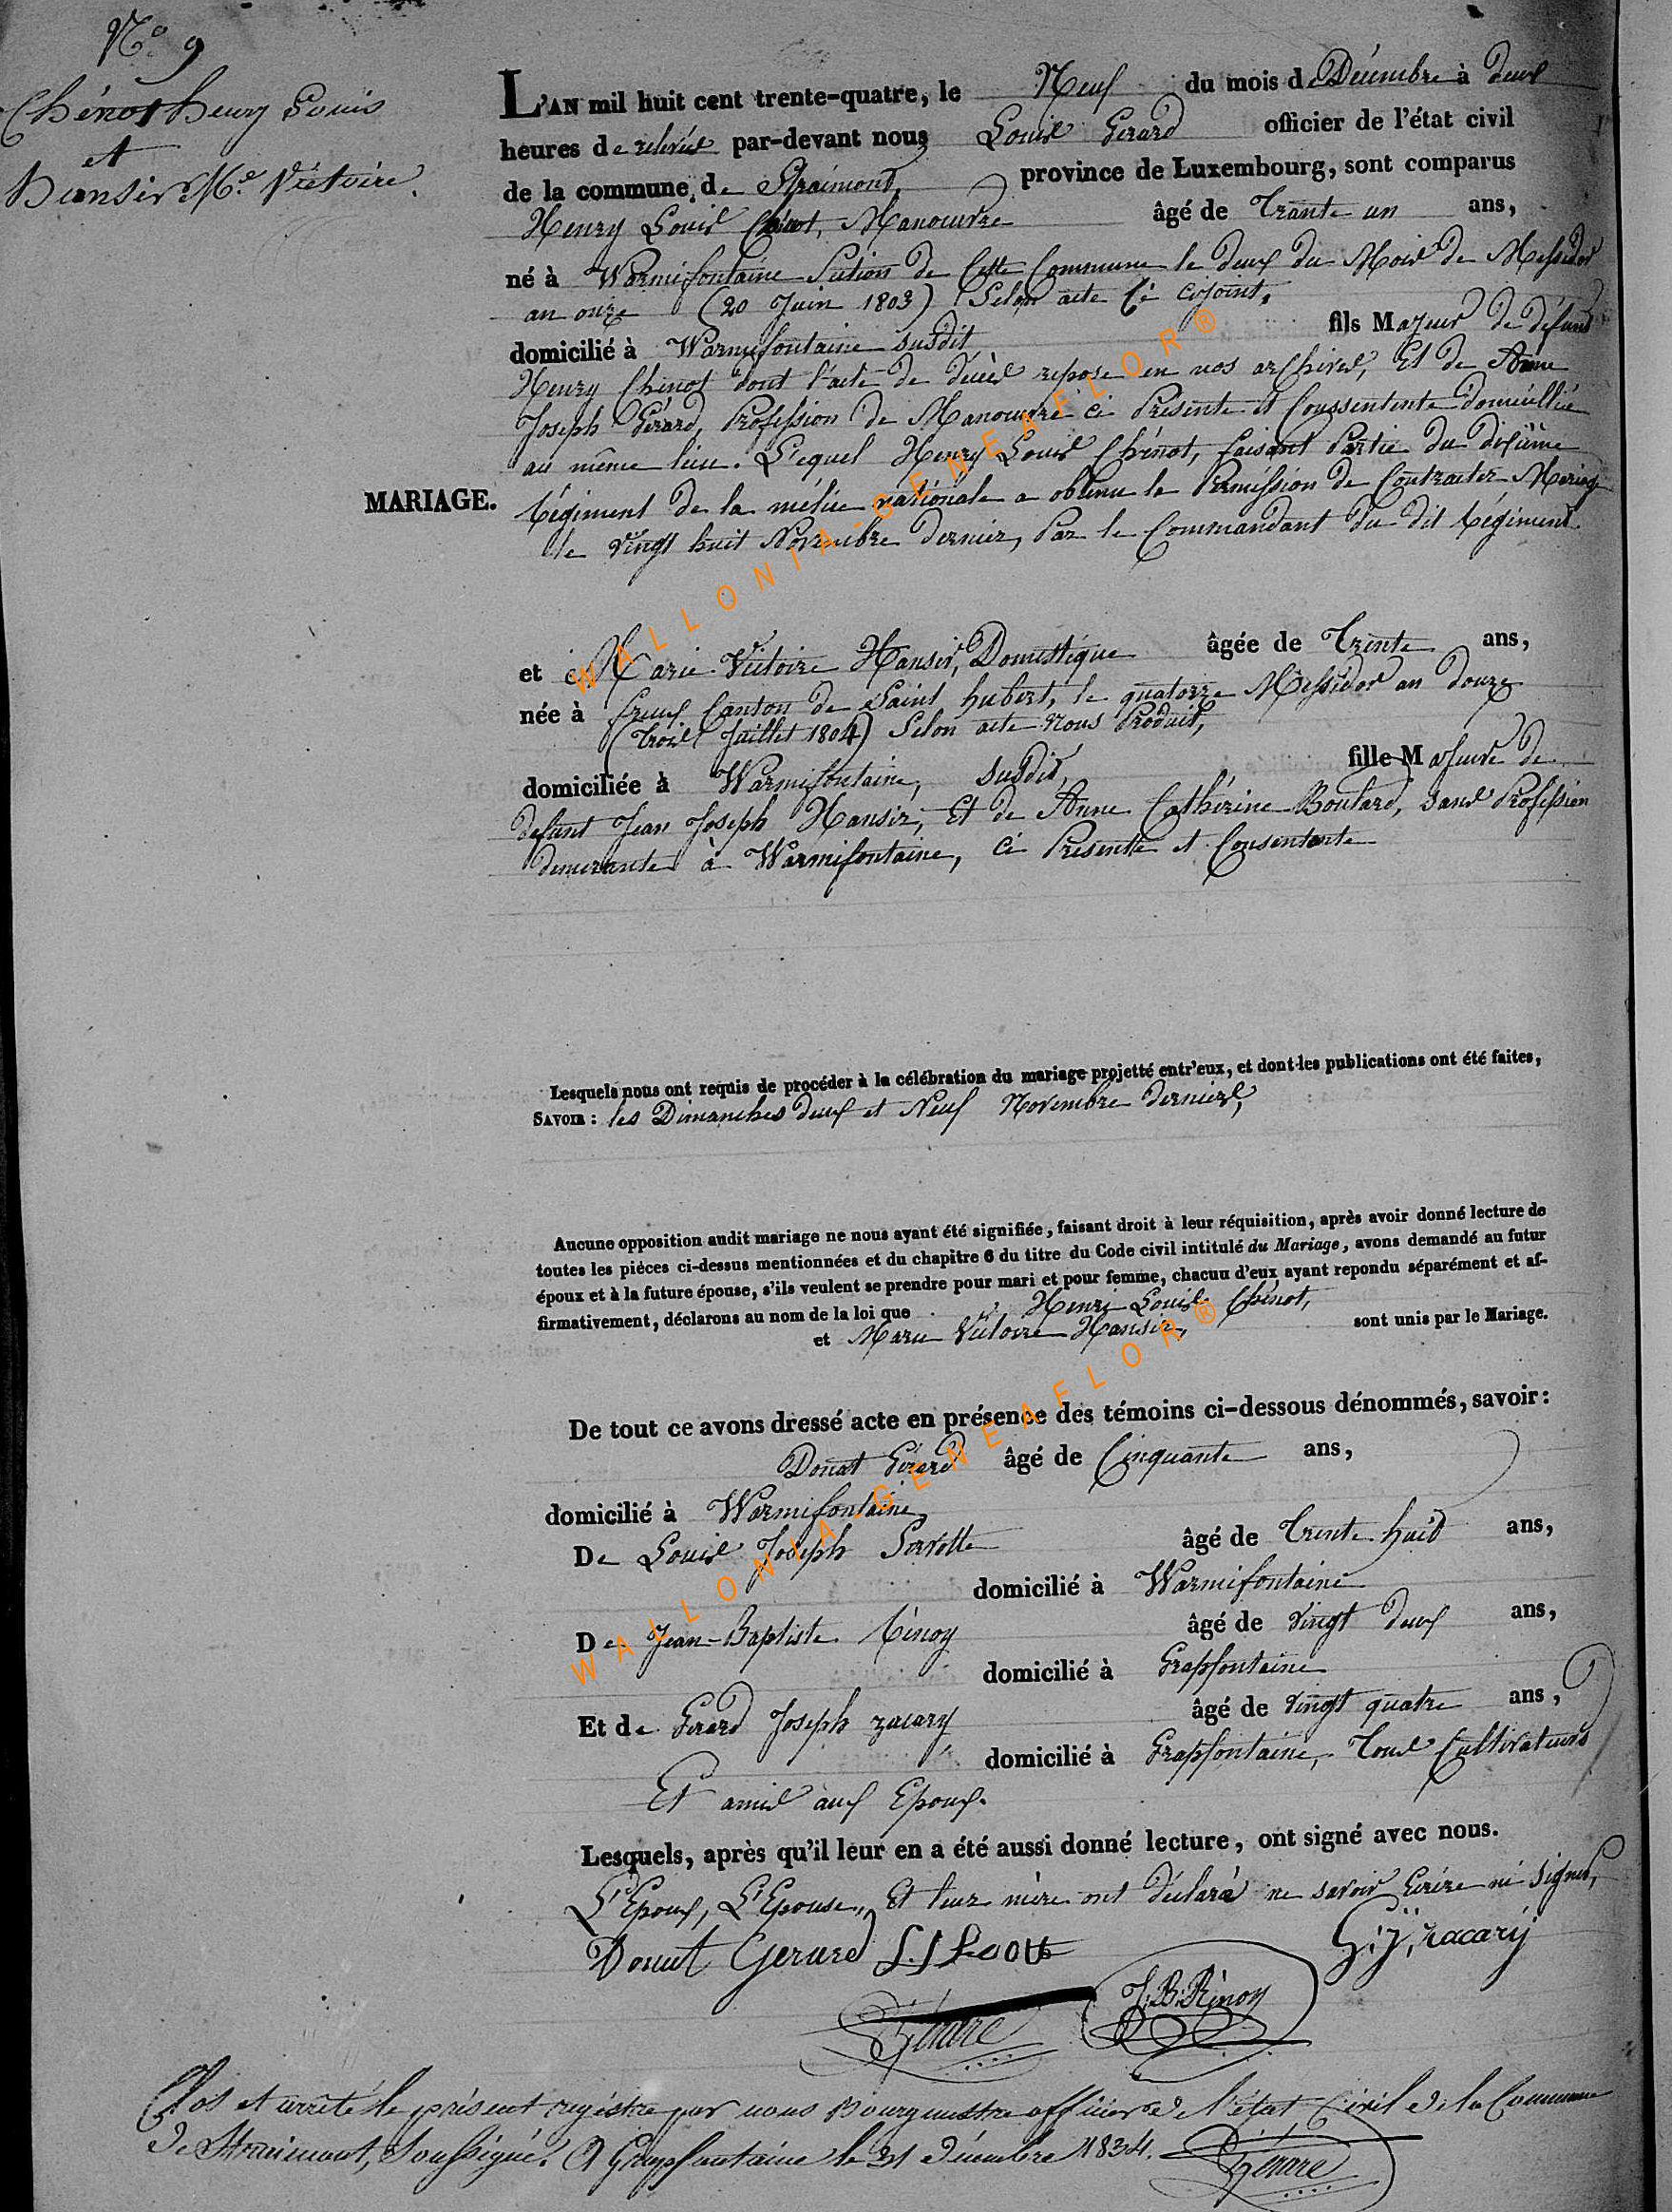 N.o 9
Chénot henry Louis
et
Hansir M.e Victoire.
L'AN mil huit cent trente-quatre, le Neuf du mois de Décembre à deux
heures de relevée par-devant nous Louis Gerard officier de l'état civil
de la commune de Straimont, province de Luxembourg, sont comparus
Henry Louis Chénot, Manouvre âgé de Trante un ans,
né à Warmifontaine Section de Cette Commune le deux du Mois de Messidor
an onze (20 Juin 1803) Selon acte ci cijoint,
domicilié à Warmifontaine susdit fils Majeur de défunt
Henry Chénot dont l'acte de décès repose en nos archives, Et de Anne
Joseph Gérard, Profession de Manouvre ci Présente et Conssentente domicilliée
au même lieu. L'equel Henry Louis Chénot, faisant Partie du dixième
MARIAGE. régiment de la milice nationale a obtenu la Permission de Contracter Mariage
le vingt huit Novembre dernier, Par le Commandant du dit régiment.
et Marie Victoire Hansir, Domestique âgée de Trente ans,
née à freux Canton de Saint hubert, le quatorze Messidor an douze
(Trois Juillet 1804) Selon acte nous Produit,
domiciliée à Warmifontaine, susdit, fille Majeure de
defunt Jean Joseph Hansir, Et de Anne Cathérine Boulard, sans Profession
demeurante à Warmifontaine, ci Presente et Consentante
Lesquels nous ont requis de procéder à la célébration du mariage projetté entr'eux, et dont les publications ont été faites,
SAVOIR : les Dimanches deux et Neuf Novembre derniers,
Aucune opposition audit mariage ne nous ayant été signifiée, faisant droit à leur réquisition, après avoir donné lecture de
toutes les pièces ci-dessus mentionnées et du chapitre 6 du titre du Code civil intitulé du Mariage, avons demandé au futur
époux et à la future épouse, s'ils veulent se prendre pour mari et pour femme, chacuu d'eux ayant repondu séparément et af-
firmativement, déclarons au nom de la loi que Henri Louis Chénot,
et Marie Victoire Hansir, sont unis par le Mariage.
De tout ce avons dressé acte en présence des témoins ci-dessous dénommés, savoir :
Donat Gérard âgé de Cinquante ans,
domicilié à Warmifontaine,
De Louis Joseph âgé de Trente huit ans,
domicilié à Warmifontaine
De Jean-Baptiste Rénoy âgé de vingt deux ans,
domicilié à Grapfontaine
Et de Gérard Joseph zacary, âgé de vingt quatre ans,
domicilié à Grapfontaine, Tous Cultivateurs
Et amis aux Epoux.
Lesquels, après qu'il leur en a été aussi donné lecture, ont signé avec nous.
L'Epoux, L'Epouse, Et leur mère ont déclaré ne savoir Ecrire ni signer,
Donut Gerard G:J: zacarÿ
J:B:Rénoy
Clos et arrêté le présent registre par nous Bourgmestre officier de l'état Civil de la Commune
de Straimont, soussigné. A Grapfontaine le 31 décembre 1834.
WALLONIA-GENEAFLOR®
WALLONIA-GENEAFLOR®